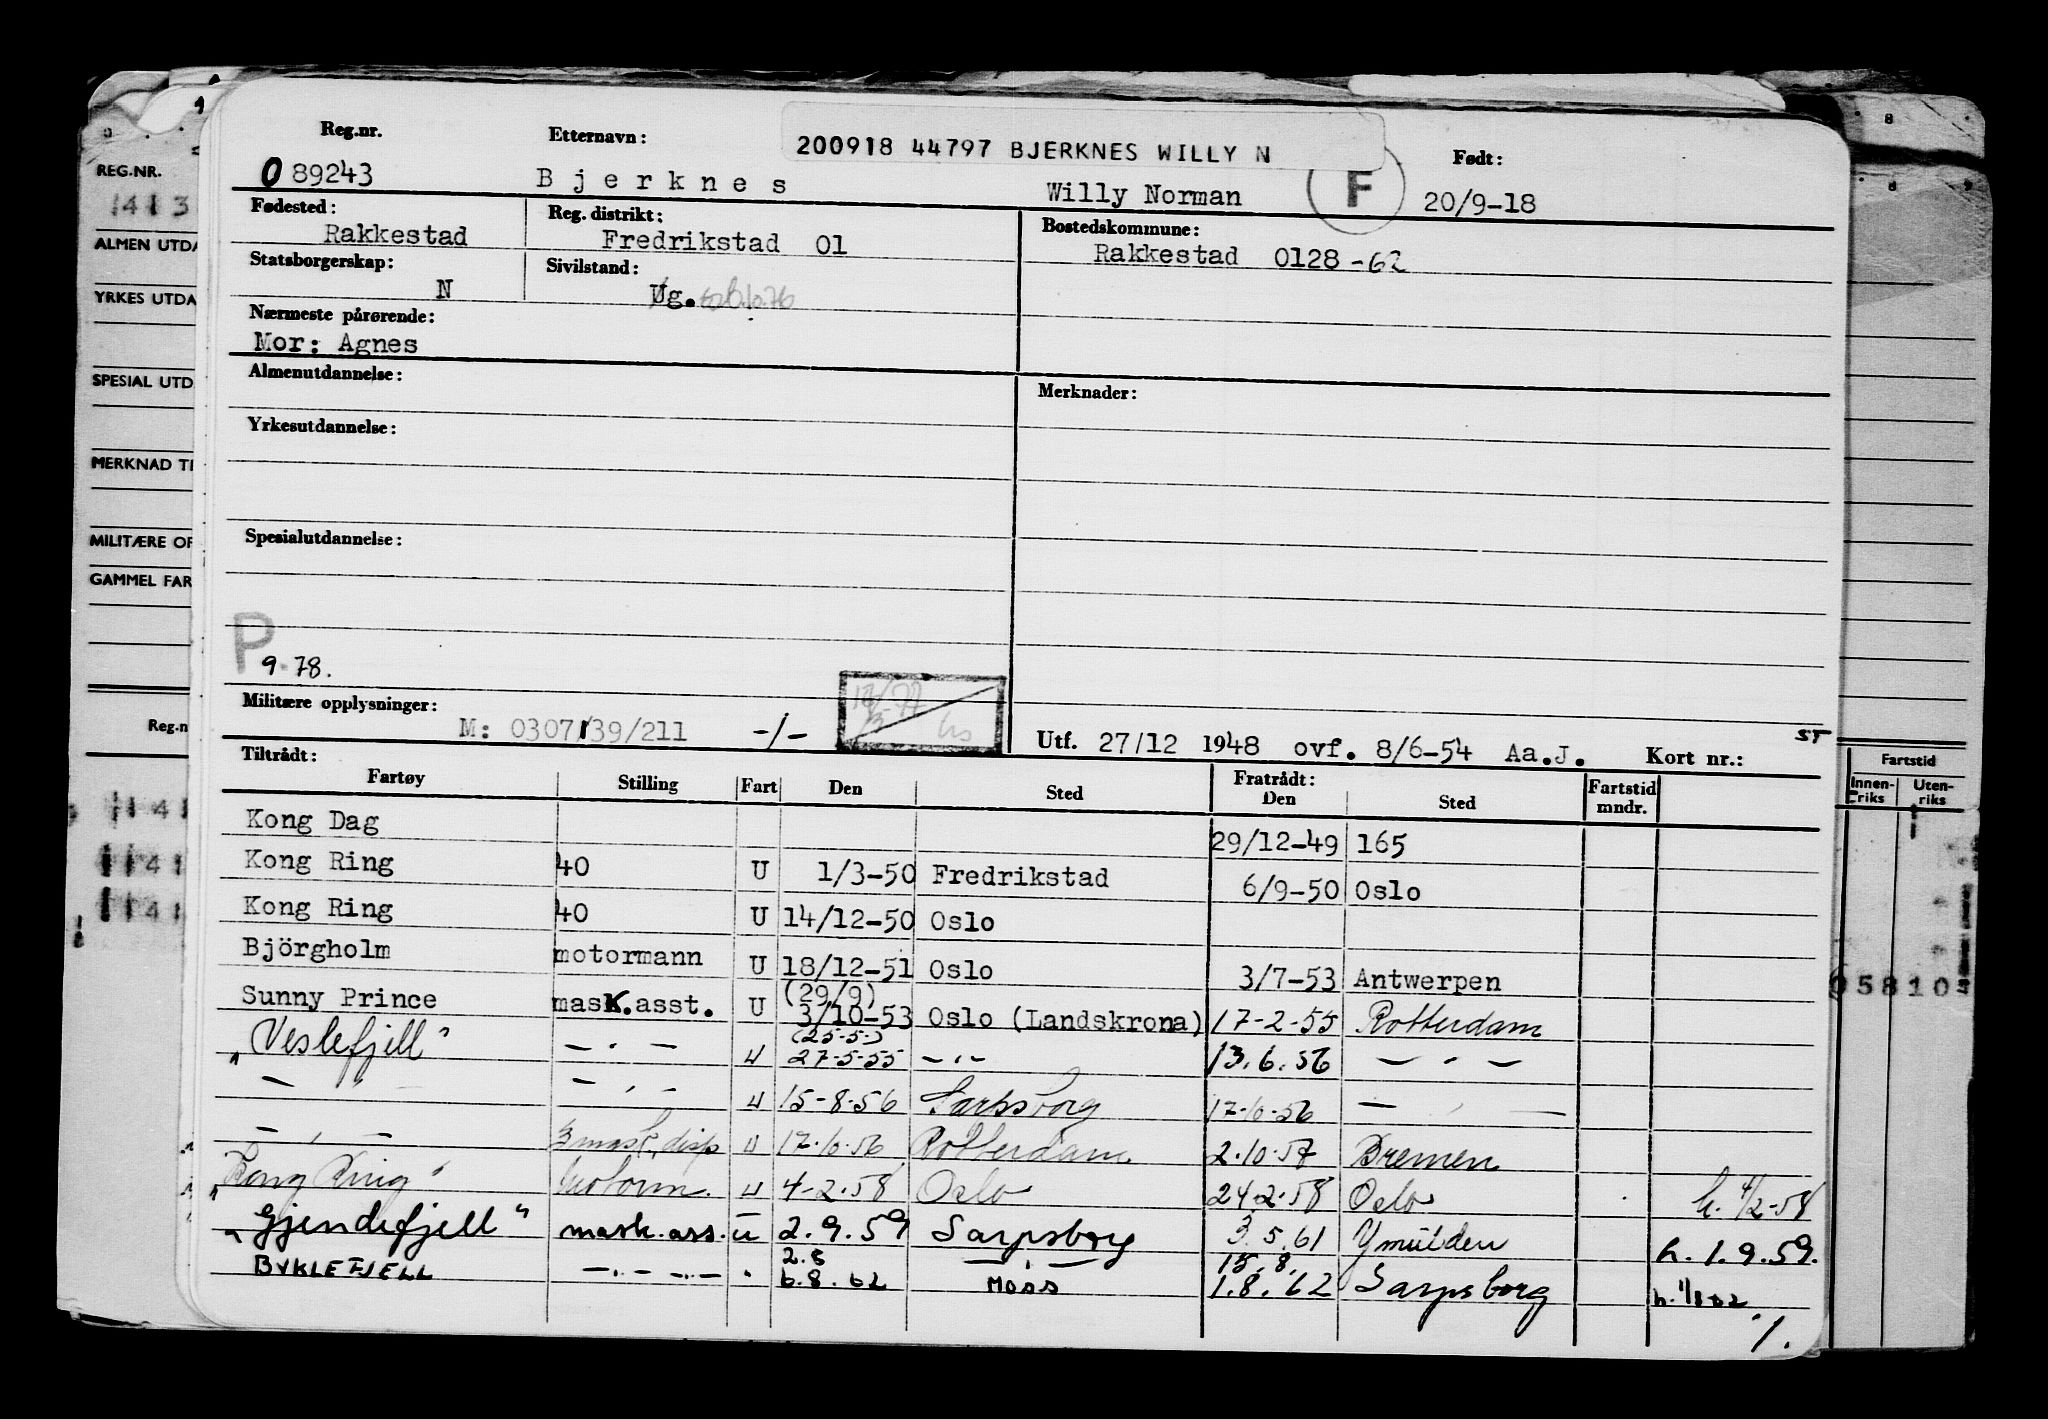 Reg.nr. Etternavn: 200918 44797 BJERKNES WILLY N Født:
089243 Bjerknes Willy Norman F 20/9-18
Fødested: Reg. distrikt: Bostedskommune:
Rakkestad Fredrikstad 01 Rakkestad 0128-62
Statsborgerskap: Sivilstand:
N Ug.
Nærmeste pårørende:
Mor: Agnes
Almenutdannelse: Merknader:
Yrkesutdannelse:
Spesialutdannelse:
P
9.78.
Militære opplysninger: M: 0307/39/211 -/-
Utf. 27/12 1948 ovf. 8/6-54 Aa.J. Kort nr.: ST
Tiltrådt: Fratrådt:
Fartøy Stilling Fart Den Sted Den Sted Fartstid mndr.
Kong Dag 29/12-49 165
Kong Ring 40 U 1/3-50 Fredrikstad 6/9-50 Oslo
Kong Ring 40 U 14/12-50 Oslo
Björgholm motormann U 18/12-51 Oslo 3/7-53 Antwerpen
Sunny Prince mask.asst. U (29/9) 3/10-53 Oslo (Landskrona) 17-2-55 Rotterdam
"Veslefjell" — . — u (25-5-) 27-5-55 — . — 13.6.56 — . —
— , — — , — u 15-8-56 Sarpsborg 17-10-56 — , —
— , — 3 mask. disp u 17.10.56 Rotterdam 2.10.57 Bremen
"Kong Ring" motorm. u 4-2-58 Oslo 24-2-58 Oslo h. 4/2-58
"Gjendefjell" mask.ass. u 2.9.59 Sarpsborg 3.5.61 Ymuiden h.1.9.59.
BYKLEFJELL —.—.— 2.8 6.8.62 — , — MOSS 15.8. 1.8.62 Sarpsborg h. 1/8 62
./.
REG.NR.
1413
ALMEN UTDA
YRKES UTDA
SPESIAL UTD
MERKNAD TI
MILITÆRE OP
GAMMEL FAR
Reg.n
Fartstid
Innen-riks Uten-riks
05810